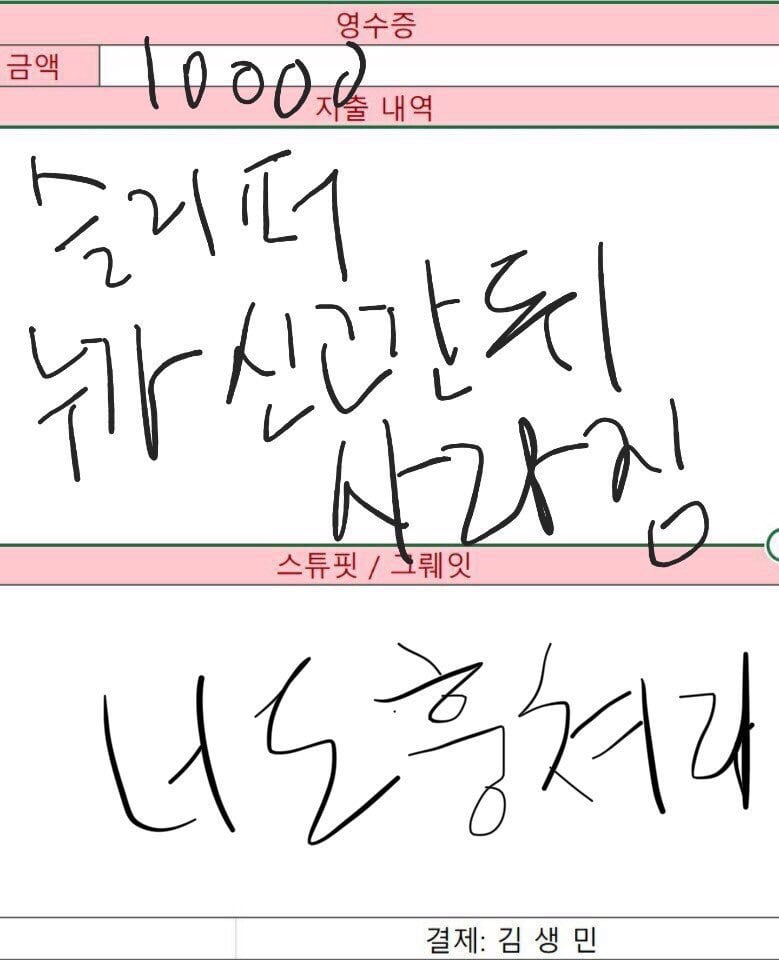 영수증
금액 10000
지출 내역
슬리퍼
누가 신고간뒤
사라짐
스튜핏 / 그뤠잇
너도훔쳐라
결제: 김 생 민